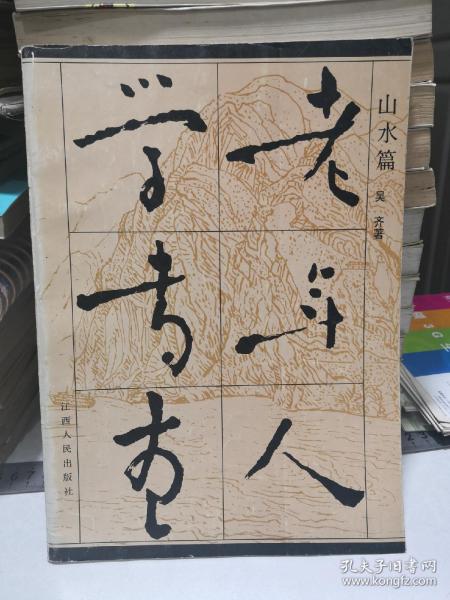 老年人
学书画
山水篇
吴齐著
江西人民出版社
孔夫子旧书网
www.kongfz.com